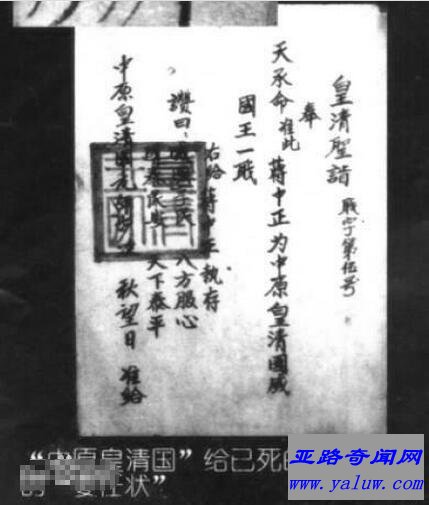 皇清聖誥 字第伍号
奉
天承命准此 蔣中正为中原皇清國威
國王一
右给蔣中正执存
讚曰： 八方服心
民 天下泰平
中原皇清国元 秋望日 准给
“中原皇清国”给已死
的“委任状”
亚路奇闻网
www.yaluw.com